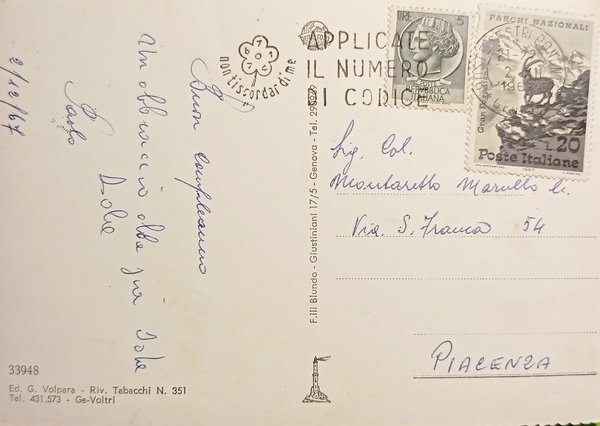 2/12/67
Buon compleanno
Un abbraccio alla zia
Paolo
non ti scordar di me
APPLICATE
IL NUMERO
DI CODICE
LIRE 5
REPUBBLICA
ITALIANA
PARCHI NAZIONALI
Gran Paradiso
L. 20
Poste Italiane
Sig. Col.
Montaretto Marullo
Via S. Franca 54
PIACENZA
F.lli Blundo - Giustiniani 17/5 - Genova - Tel.
33948
Ed. G. Volpara - Riv. Tabacchi N. 351
Tel. 431.573 - Ge-Voltri